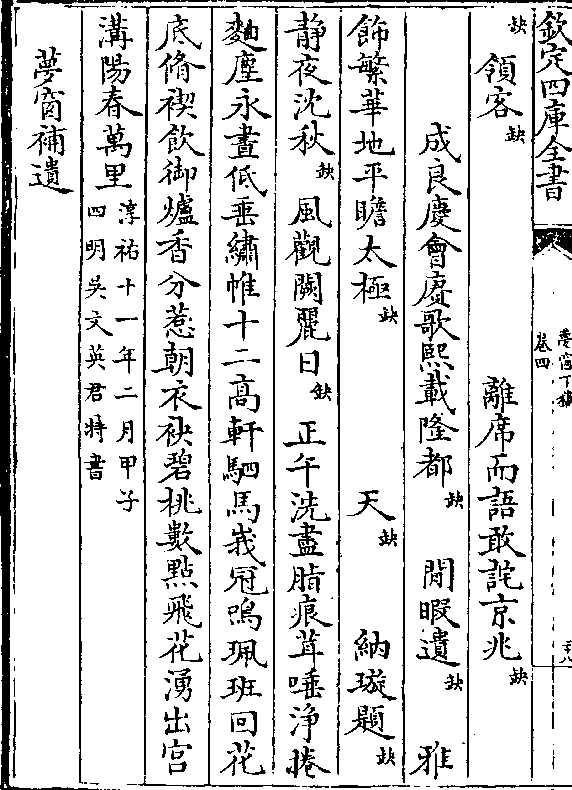 欽定四庫全書
夢窗丁稿
卷四
缺 領客缺 離席而語敢詫京兆缺
成良慶會慶歌熙載隆都缺 閒暇遺缺 雅
飾繁華地平瞻太極缺 天缺 納璇題缺
静夜沈秋缺 風觀闕麗日缺 正午洗盡脂痕茸唾浄捲
麯塵永晝低垂繡帷十二高軒駟馬峩冠鳴珮班回花
底脩禊飲御爐香分惹朝衣袂碧桃數點飛花湧出宫
溝陽春萬里淳祐十一年二月甲子
四明吳文英君特書
夢窗補遺